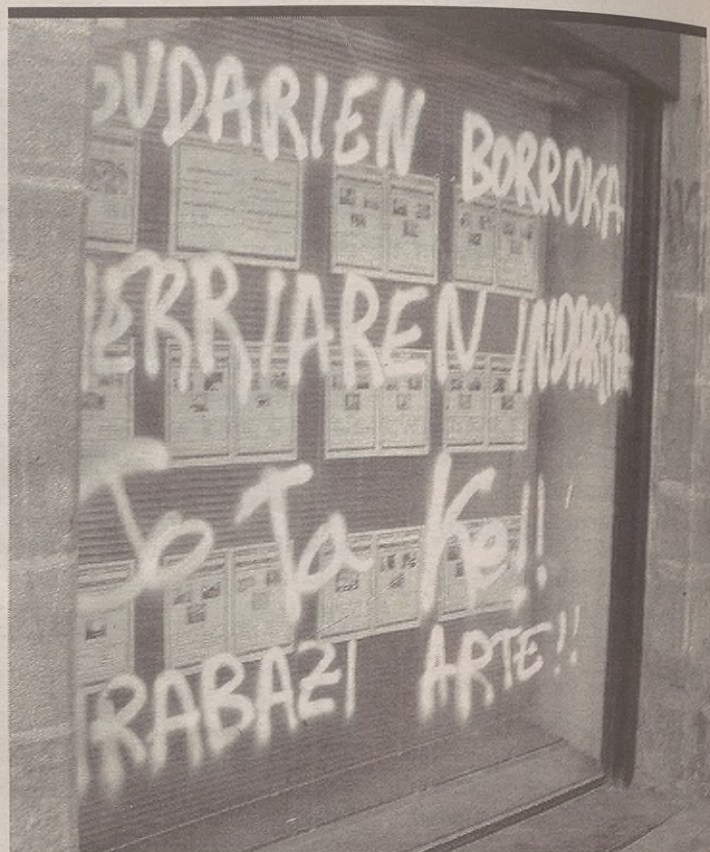 GUDARIEN BORROKA
HERRIAREN INDARRA
Jo Ta Ke!!
IRABAZI ARTE!!